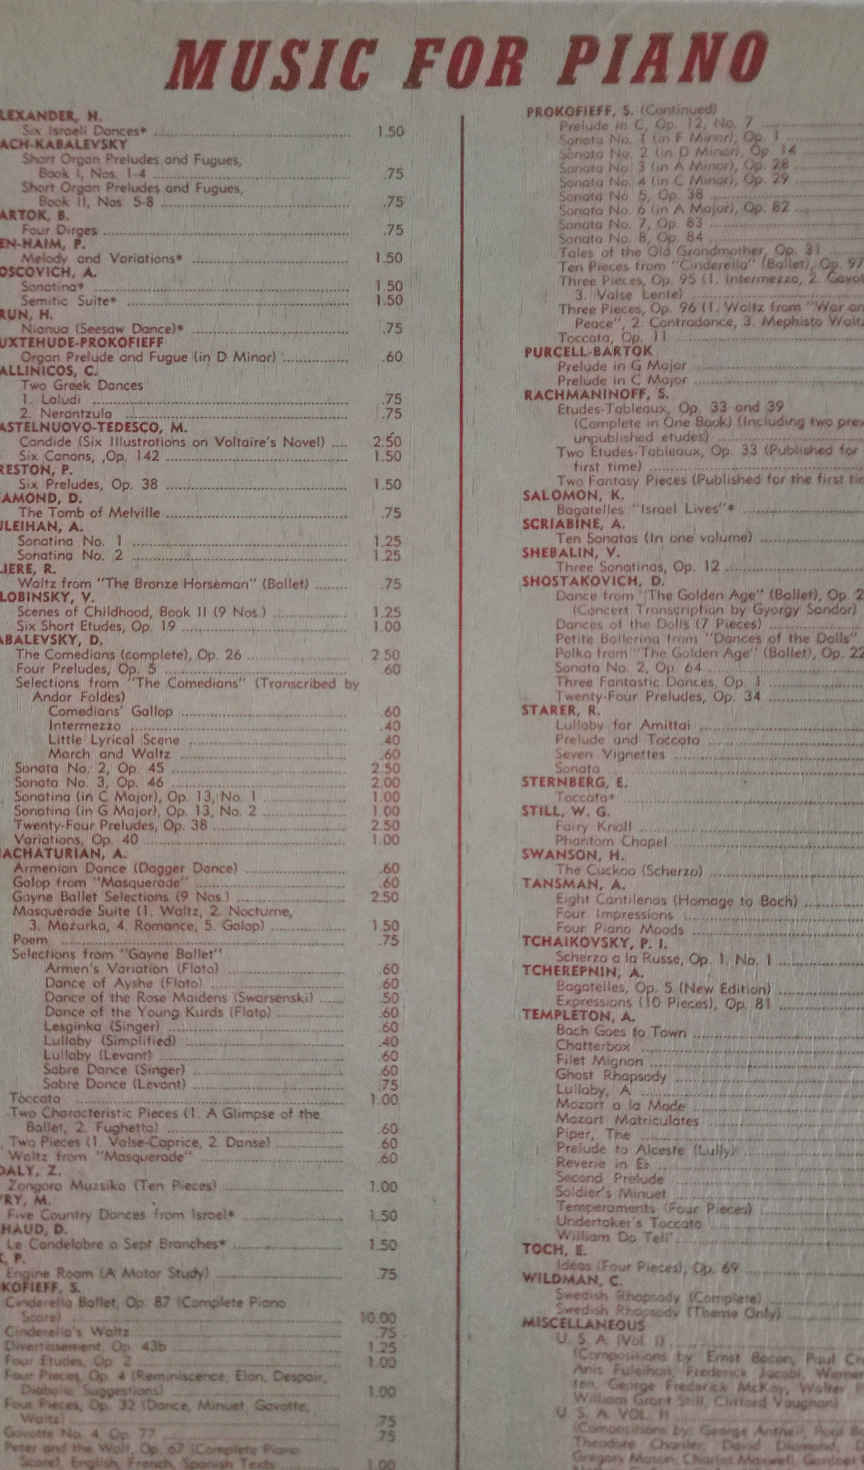 MUSIC FOR PIANO
LEXANDER, H.
Six Israeli Dances* 1.50
ACH-KABALEVSKY
Short Organ Preludes and Fugues,
Book I, Nos. 1-4 .75
Short Organ Preludes and Fugues,
Book II, Nos. 5-8 .75
ARTOK, B.
Four Dirges .75
EN-HAIM, P.
Melody and Variations* 1.50
OSCOVICH, A.
Sonatina* 1.50
Semitic Suite* 1.50
RUN, H.
Nianua (Seesaw Dance)* .75
UXTEHUDE-PROKOFIEFF
Organ Prelude and Fugue (in D Minor) .60
ALLINICOS, C.
Two Greek Dances
1. Laludi .75
2. Nerantzula .75
ASTELNUOVO-TEDESCO, M.
Candide (Six Illustrations on Voltaire's Novel) 2.50
Six Canons, Op. 142 1.50
RESTON, P.
Six Preludes, Op. 38 1.50
AMOND, D.
The Tomb of Melville .75
ULEIHAN, A.
Sonatina No. 1 1.25
Sonatina No. 2 1.25
LIERE, R.
Waltz from "The Bronze Horseman" (Ballet) .75
LOBINSKY, V.
Scenes of Childhood, Book II (9 Nos.) 1.25
Six Short Etudes, Op. 19 1.00
ABALEVSKY, D.
The Comedians (complete), Op. 26 2.50
Four Preludes, Op. 5 .60
Selections from "The Comedians" (Transcribed by
Andor Foldes)
Comedians' Gallop .60
Intermezzo .40
Little Lyrical Scene .40
March and Waltz .60
Sonata No. 2, Op. 45 2.50
Sonata No. 3, Op. 46 2.00
Sonatina (in C Major), Op. 13, No. 1 1.00
Sonatina (in G Major), Op. 13, No. 2 1.00
Twenty-Four Preludes, Op. 38 2.50
Variations, Op. 40 1.00
ACHATURIAN, A.
Armenian Dance (Dagger Dance) .60
Galop from "Masquerade" .60
Gayne Ballet Selections (9 Nos.) 2.50
Masquerade Suite (1. Waltz, 2. Nocturne,
3. Mazurka, 4. Romance, 5. Galop) 1.50
Poem .75
Selections from "Gayne Ballet"
Armen's Variation (Flato) .60
Dance of Ayshe (Flato) .60
Dance of the Rose Maidens (Swarsenski) .50
Dance of the Young Kurds (Flato) .60
Lesginka (Singer) .60
Lullaby (Simplified) .40
Lullaby (Levant) .60
Sabre Dance (Singer) .60
Sabre Dance (Levant) .75
Toccata 1.00
Two Characteristic Pieces (1. A Glimpse of the
Ballet, 2. Fughetta) .60
Two Pieces (1. Valse-Caprice, 2. Danse) .60
Waltz from "Masquerade" .60
DALY, Z.
Zongora Muzsika (Ten Pieces) 1.00
RY, M.
Five Country Dances from Israel* 1.50
HAUD, D.
Le Candelabre a Sept Branches* 1.50
P.
Engine Room (A Motor Study) .75
KOFIEFF, S.
Cinderella Ballet, Op. 87 (Complete Piano
Score) 10.00
Cinderella's Waltz .75
Divertissement, Op. 43b 1.25
Four Etudes, Op. 2 1.00
Four Pieces, Op. 4 (Reminiscence, Elan, Despair,
Diabolic Suggestions) 1.00
Four Pieces, Op. 32 (Dance, Minuet, Gavotte,
Waltz) .75
Gavotte No. 4, Op. 77 .75
Peter and the Wolf, Op. 67 (Complete Piano
Score), English, French, Spanish Texts 1.00
PROKOFIEFF, S. (Continued)
Prelude in C, Op. 12, No. 7
Sonata No. 1 (in F Minor), Op. 1
Sonata No. 2 (in D Minor), Op. 14
Sonata No. 3 (in A Minor), Op. 28
Sonata No. 4 (in C Minor), Op. 29
Sonata No. 5, Op. 38
Sonata No. 6 (in A Major), Op. 82
Sonata No. 7, Op. 83
Sonata No. 8, Op. 84
Tales of the Old Grandmother, Op. 31
Ten Pieces from "Cinderella" (Ballet), Op. 97
Three Pieces, Op. 95 (1. Intermezzo, 2. Gavot
3. Valse Lente)
Three Pieces, Op. 96 (1. Waltz from "War an
Peace", 2. Contradance, 3. Mephisto Waltz
Toccata, Op. 11
PURCELL-BARTOK
Prelude in G Major
Prelude in C Major
RACHMANINOFF, S.
Etudes-Tableaux, Op. 33 and 39
(Complete in One Book) (Including two prev
unpublished etudes)
Two Etudes-Tableaux, Op. 33 (Published for
first time)
Two Fantasy Pieces (Published for the first tim
SALOMON, K.
Bagatelles "Israel Lives"*
SCRIABINE, A.
Ten Sonatas (In one volume)
SHEBALIN, V.
Three Sonatinas, Op. 12
SHOSTAKOVICH, D.
Dance from "The Golden Age" (Ballet), Op. 2
(Concert Transcription by Gyorgy Sandor)
Dances of the Dolls (7 Pieces)
Petite Ballerina from "Dances of the Dolls"
Polka from "The Golden Age" (Ballet), Op. 22
Sonata No. 2, Op. 64
Three Fantastic Dances, Op. 1
Twenty-Four Preludes, Op. 34
STARER, R.
Lullaby for Amittai
Prelude and Toccata
Seven Vignettes
Sonata
STERNBERG, E.
Toccata*
STILL, W. G.
Fairy Knoll
Phantom Chapel
SWANSON, H.
The Cuckoo (Scherzo)
TANSMAN, A.
Eight Cantilenas (Homage to Bach)
Four Impressions
Four Piano Moods
TCHAIKOVSKY, P. I.
Scherzo a la Russe, Op. 1, No. 1
TCHEREPNIN, A.
Bagatelles, Op. 5 (New Edition)
Expressions (10 Pieces), Op. 81
TEMPLETON, A.
Bach Goes to Town
Chatterbox
Filet Mignon
Ghost Rhapsody
Lullaby, A
Mozart a la Mode
Mozart Matriculates
Piper, The
Prelude to Alceste (Lully)
Reverie in E♭
Second Prelude
Soldier's Minuet
Temperaments (Four Pieces)
Undertaker's Toccata
William Do Tell
TOCH, E.
Ideas (Four Pieces), Op. 69
WILDMAN, C.
Swedish Rhapsody (Complete)
Swedish Rhapsody (Theme Only)
MISCELLANEOUS
U. S. A. (Vol. I)
(Compositions by: Ernst Bacon, Paul Cr
Anis Fuleihan, Frederick Jacobi, Werner
ten, George Frederick McKay, Walter
William Grant Still, Clifford Vaughan)
U. S. A. VOL. II
(Compositions by: George Antheil, Paul B
Theodore Chanler, David Diamond,
Gregory Mason, Charles Maxwell, Gardner